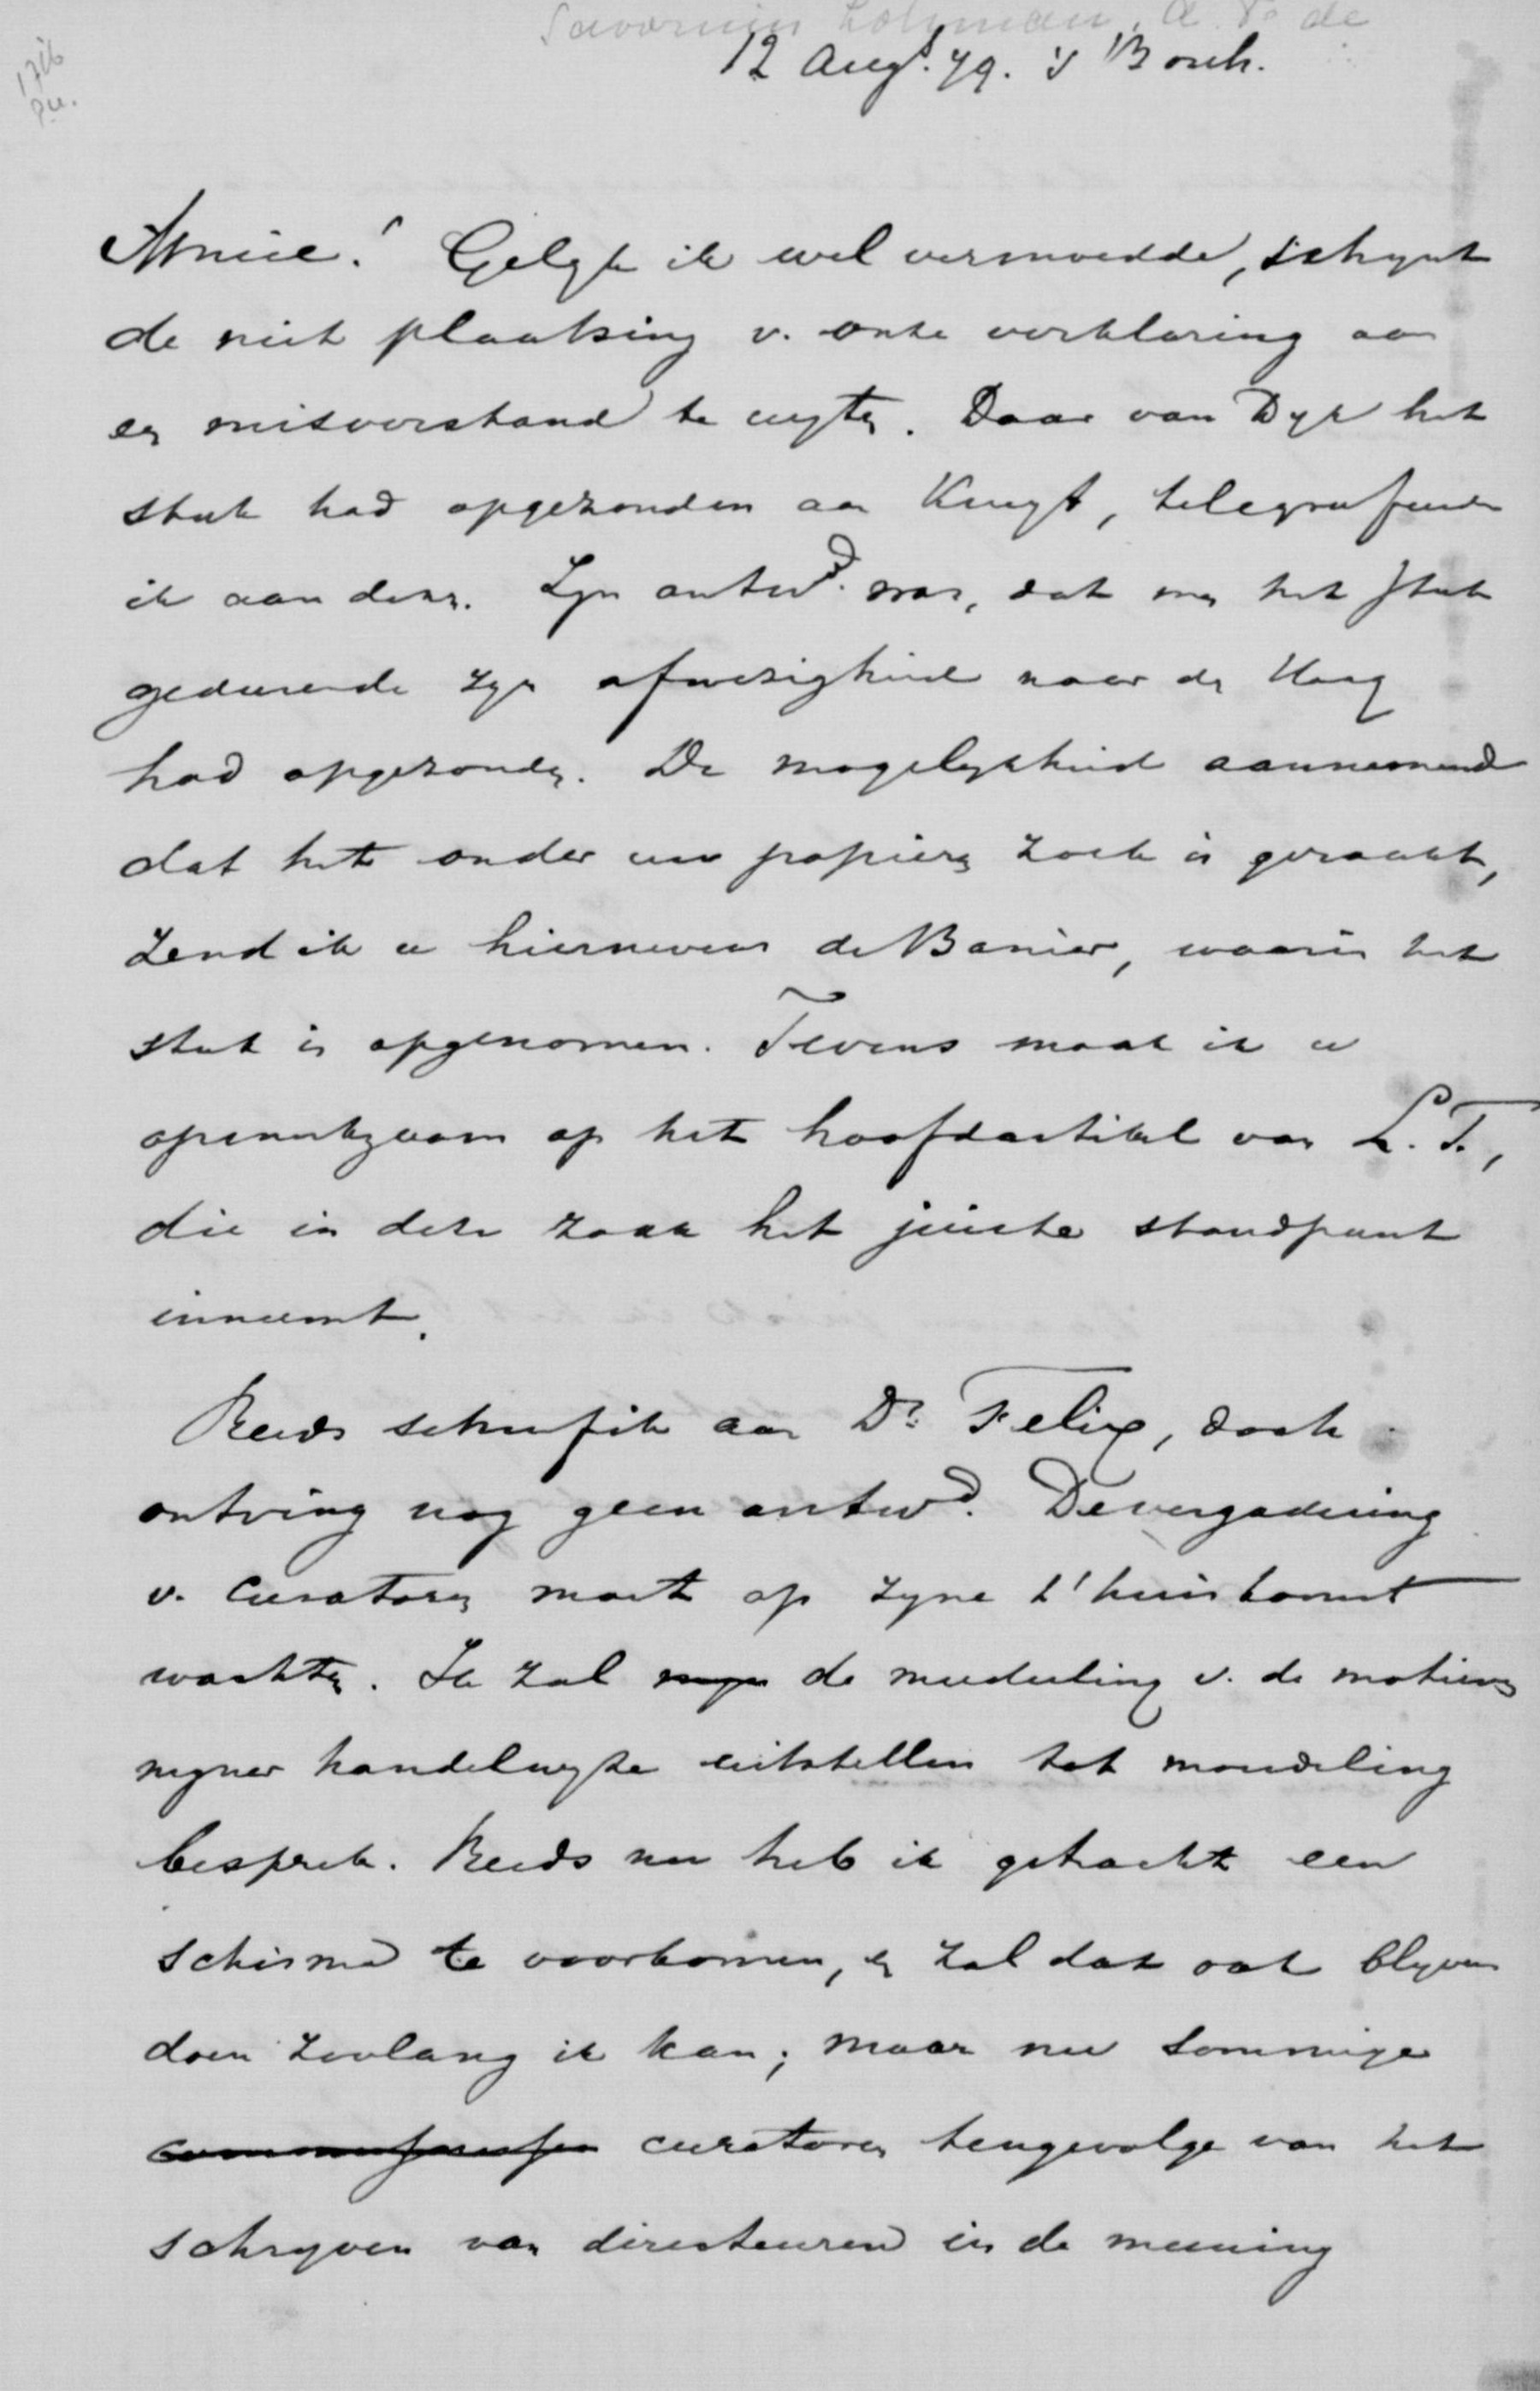 Savornin Lohman, A. F. de
12 Aug^t. 79. 's Bosch.
Amice! Gelyk ik wel vermoedde, schynt
de niet plaatsing v. onze verklaring aan
een misverstand te wyten. Daar van Dyk het
stuk had opgezonden aan Kuyp, telegrafeerde
ik aan dezen. Zyn antw^d. was, dat men het stuk
gedurende zyn afwezigheid naar den Haag
had opgezonden. De mogelykheid aannemend
dat het onder uw papieren zoek is geraakt,
zend ik u hiernevens de Banier, waarin het
stuk is opgenomen. Tevens maak ik u
opmerkzaam op het hoofdartikel van L. T.,
die in deze zaak het juiste standpunt
inneemt.
Reeds schreef ik aan Dr. Felix, doch
ontving nog geen antw^d. De vergadering
v. Curatoren moet op zyne t'huiskomst
wachten. Ik zal de mededeeling v. de motieven
myner handelwyze uitstellen tot mondeling
gesprek. Reeds nu heb ik getracht een
schisma te voorkomen, en zal dat ook blyven
doen zoolang ik kan; maar nu sommige
curatoren tengevolge van het
schryven van directeuren in de meening